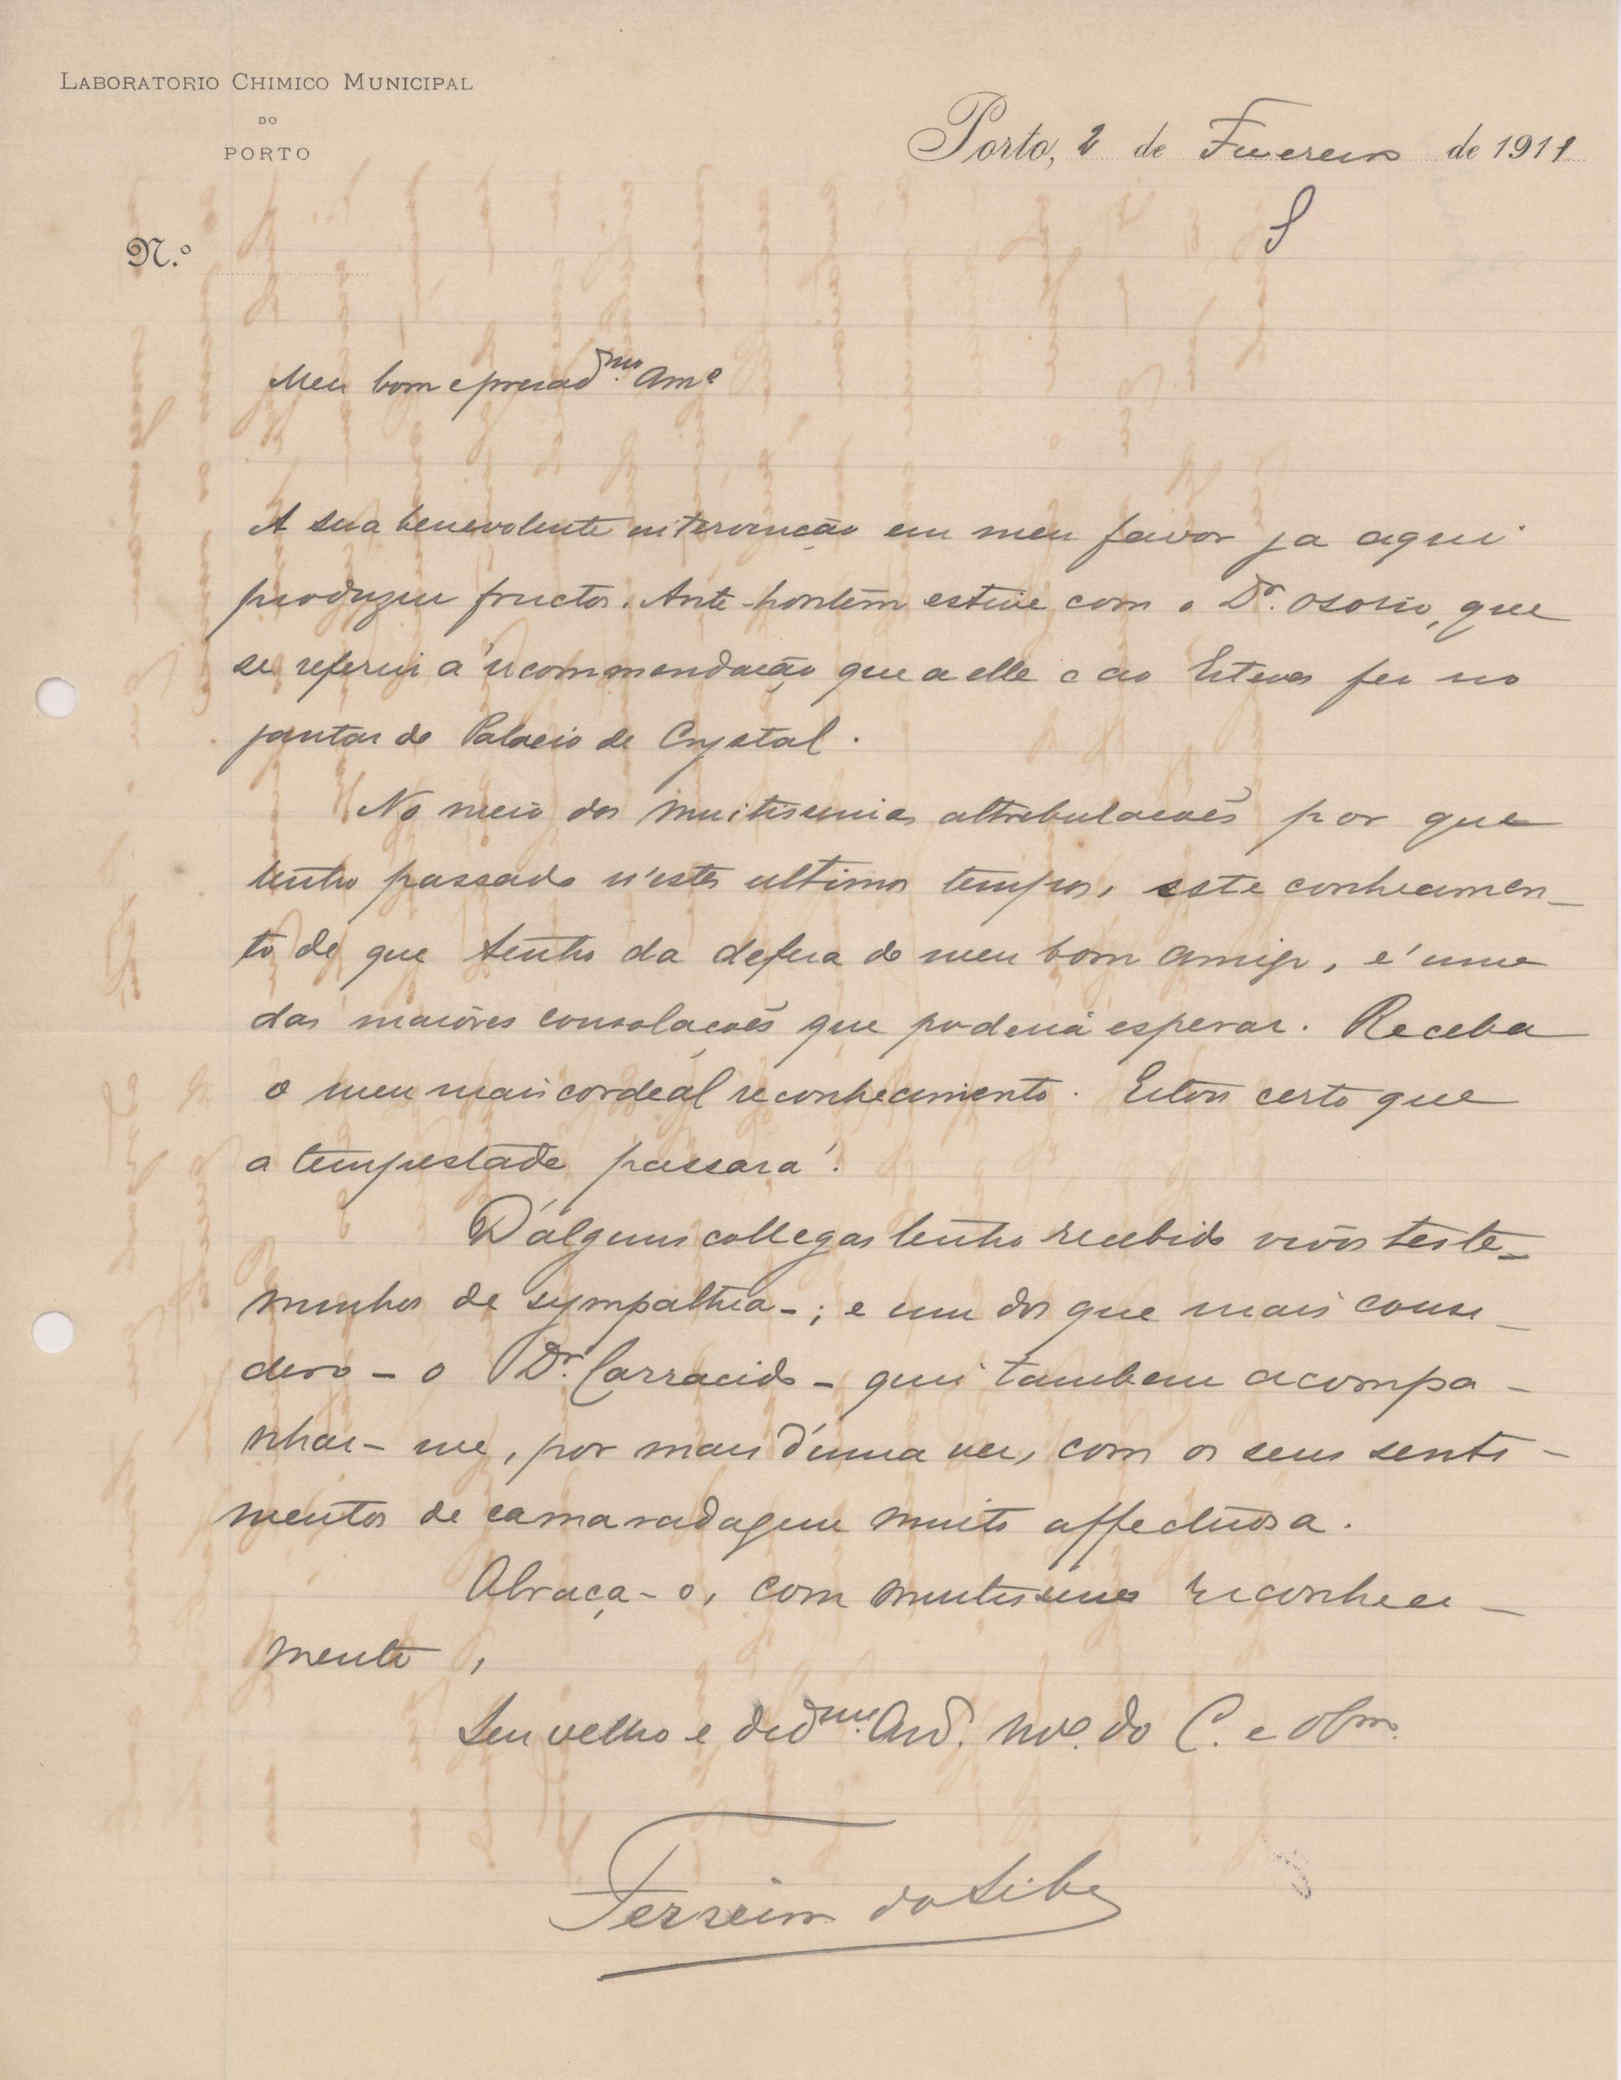 LABORATORIO CHIMICO MUNICIPAL
DO
PORTO
Porto, 2 de Fevereiro de 1911
S
N.º
Meu bom e presad.mo Am.º
A sua benevolente intervenção em meu favor ja aqui
produziu fructos. Ante-hontem estive com o Dr. Osorio, que
se referiu á recommendação que a elle e ao Esteves fez no
jantar do Palacio de Crystal.
No meio das muitissimas attribulações por que
tenho passado n'estes ultimos tempos, este conhecimen-
to de que tenho da defeza do meu bom amigo, é uma
das maiores consolações que poderia esperar. Receba
o meu mais cordeal reconhecimento. Estou certo que
a tempestade passará.
D'alguns collegas tenho recebido vivos teste-
munhos de sympathia-; e um dos que mais consi-
dero - o Dr. Carracido - quiz tambem acompa-
nhar-me, por mais d'uma vez, com os seus senti-
mentos de camaradagem muito affectuosa.
Abraça-o, com muitissimo reconheci-
mento,
Seu velho e ded.mo Am.º m.to do C. e obr.º
Ferreira da Silva